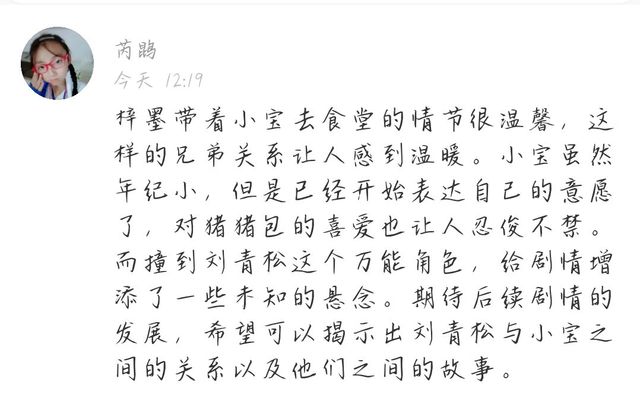 芮鹍
今天 12:19
梓墨带着小宝去食堂的情节很温馨，这
样的兄弟关系让人感到温暖。小宝虽然
年纪小，但是已经开始表达自己的意愿
了，对猪猪包的喜爱也让人忍俊不禁。
而撞到刘青松这个万能角色，给剧情增
添了一些未知的悬念。期待后续剧情的
发展，希望可以揭示出刘青松与小宝之
间的关系以及他们之间的故事。